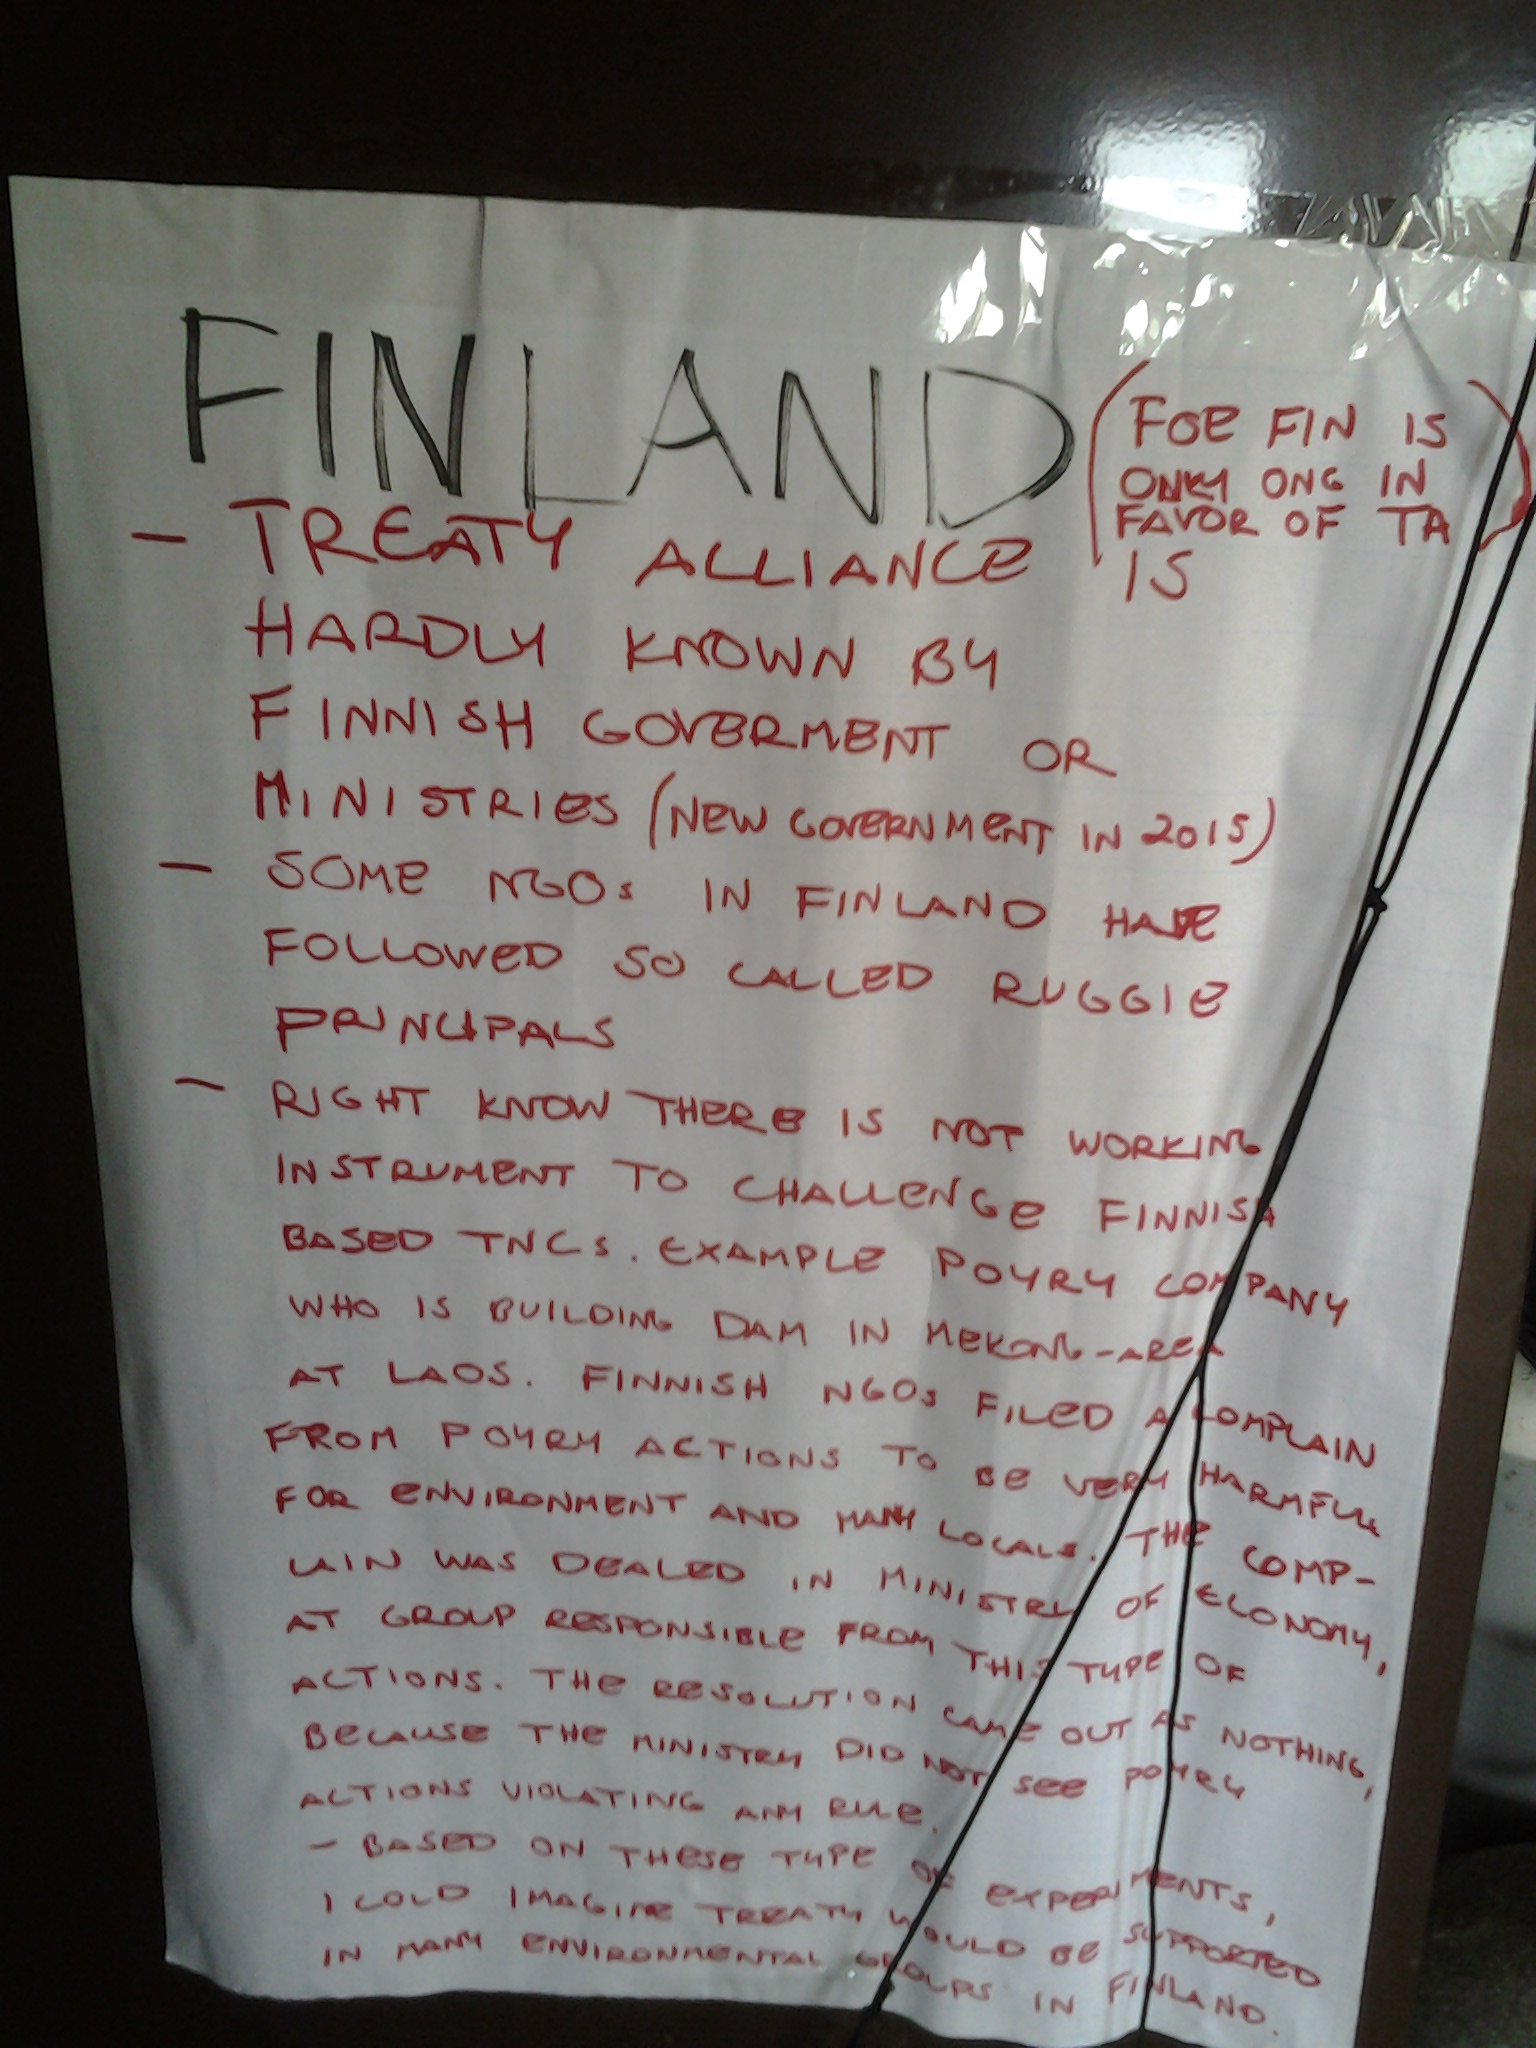 FINLAND
(FOE FIN IS
ONLY ONG IN
FAVOR OF TA)
- TREATY ALLIANCE IS
HARDLY KNOWN BY
FINNISH GOVERMENT OR
MINISTRIES (NEW GOVERNMENT IN 2015)
- SOME NGOs IN FINLAND HAVE
FOLLOWED SO CALLED RUGGIE
PRINCIPALS
- RIGHT KNOW THERE IS NOT WORKING
INSTRUMENT TO CHALLENGE FINNISH
BASED TNCs. EXAMPLE POYRY COMPANY
WHO IS BUILDING DAM IN MEKONG-AREA
AT LAOS. FINNISH NGOs FILED A COMPLAIN
FROM POYRY ACTIONS TO BE VERY HARMFUL
FOR ENVIRONMENT AND MANY LOCALS. THE COMP-
LAIN WAS DEALED IN MINISTRY OF ECONOMY,
AT GROUP RESPONSIBLE FROM THIS TYPE OF
ACTIONS. THE RESOLUTION CAME OUT AS NOTHING,
BECAUSE THE MINISTRY DID NOT SEE POYRY
ACTIONS VIOLATING ANY RULE.
- BASED ON THESE TYPE OF EXPERIMENTS,
I COLD IMAGINE TREATY WOULD BE SUPPORTED
IN MANY ENVIRONMENTAL GROUPS IN FINLAND.